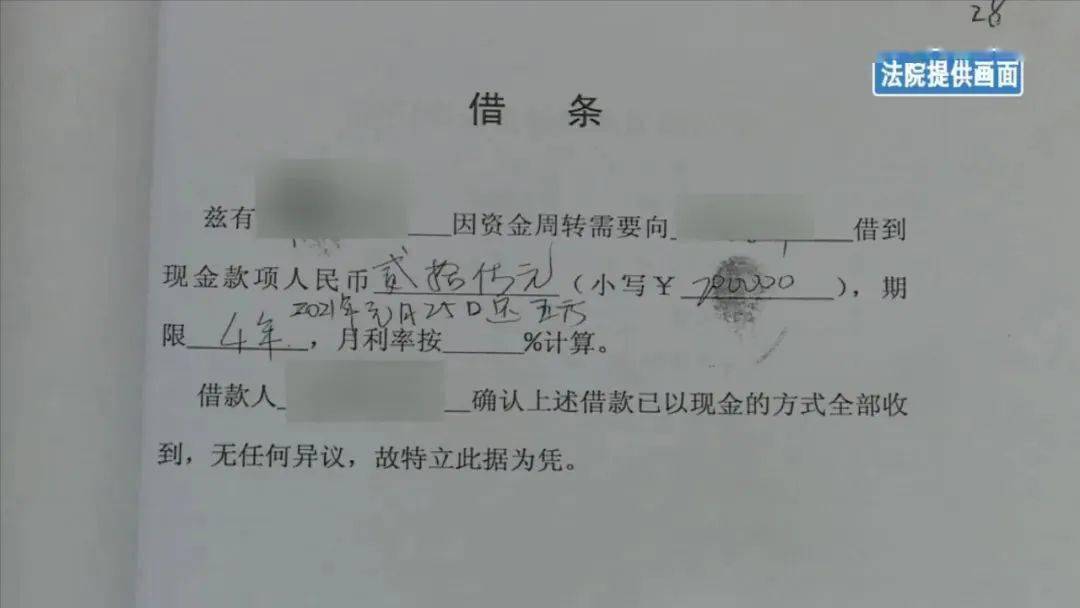 28
法院提供画面
借 条
兹有___因资金周转需要向___借到
现金款项人民币贰拾万元(小写¥200000),期
2021年元月25日还五万
限4年,月利率按___%计算。
借款人___确认上述借款已以现金的方式全部收
到,无任何异议,故特立此据为凭。